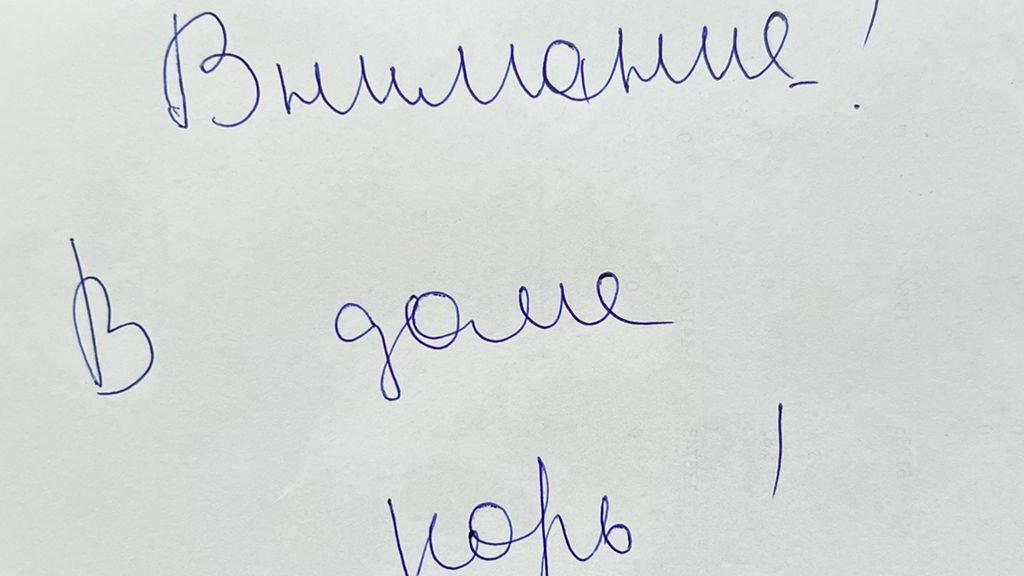 Внимание!
В доме
корь!